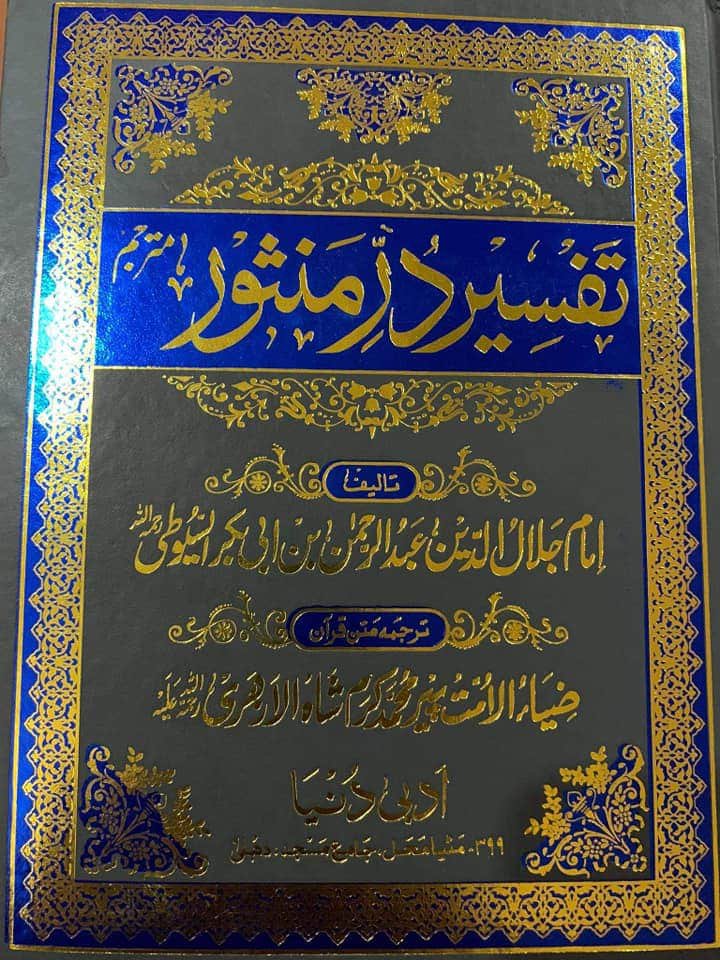 تفسیر دُرِّ مَنثور مترجم
تالیف
امام جلال الدین عبد الرحمٰن بن ابی بکر السیوطی رحمہ اللہ
ترجمہ متن قرآن
ضیاء الامت پیر محمد کرم شاہ الازہری رحمۃ اللہ علیہ
ادبی دُنیا
۳۹۹۔ مٹیا محل۔ جامع مسجد۔ دہلی